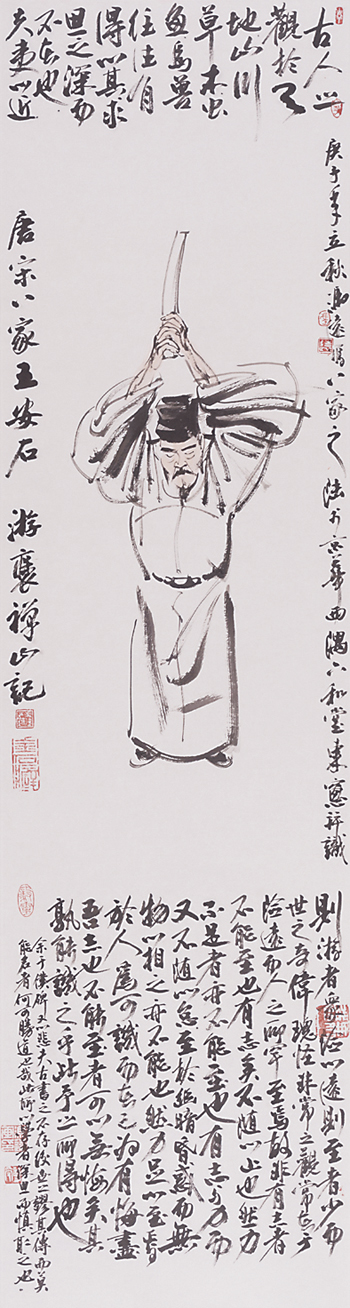 古人之
觀於天
地山川
草木虫
魚鳥獸
往往有
得以其求
思之深而
不在也
夫夷以近
庚子年立秋馮遠寫八家之陸於京華西隅六和堂東窗并識
唐宋八家王安石 游褒禅山記
則游者眾險以遠則至者少而
世之奇偉瑰怪非常之觀常在于
險遠而人之所罕至焉故非有志者
不能至也有志矣不随以止也然力
不足者亦不能至也有志与力而
又不随以怠至於幽暗昏惑而無
物以相之亦不能也然力足以至焉
於人為可譏而在己為有悔盡
吾志也不能至者可以無悔矣其
孰能譏之乎此予之所得也
余于僕碑又以悲夫古書之不存後世之謬其傳而莫
能名者何可勝道也哉此所以學者深思而慎取之也